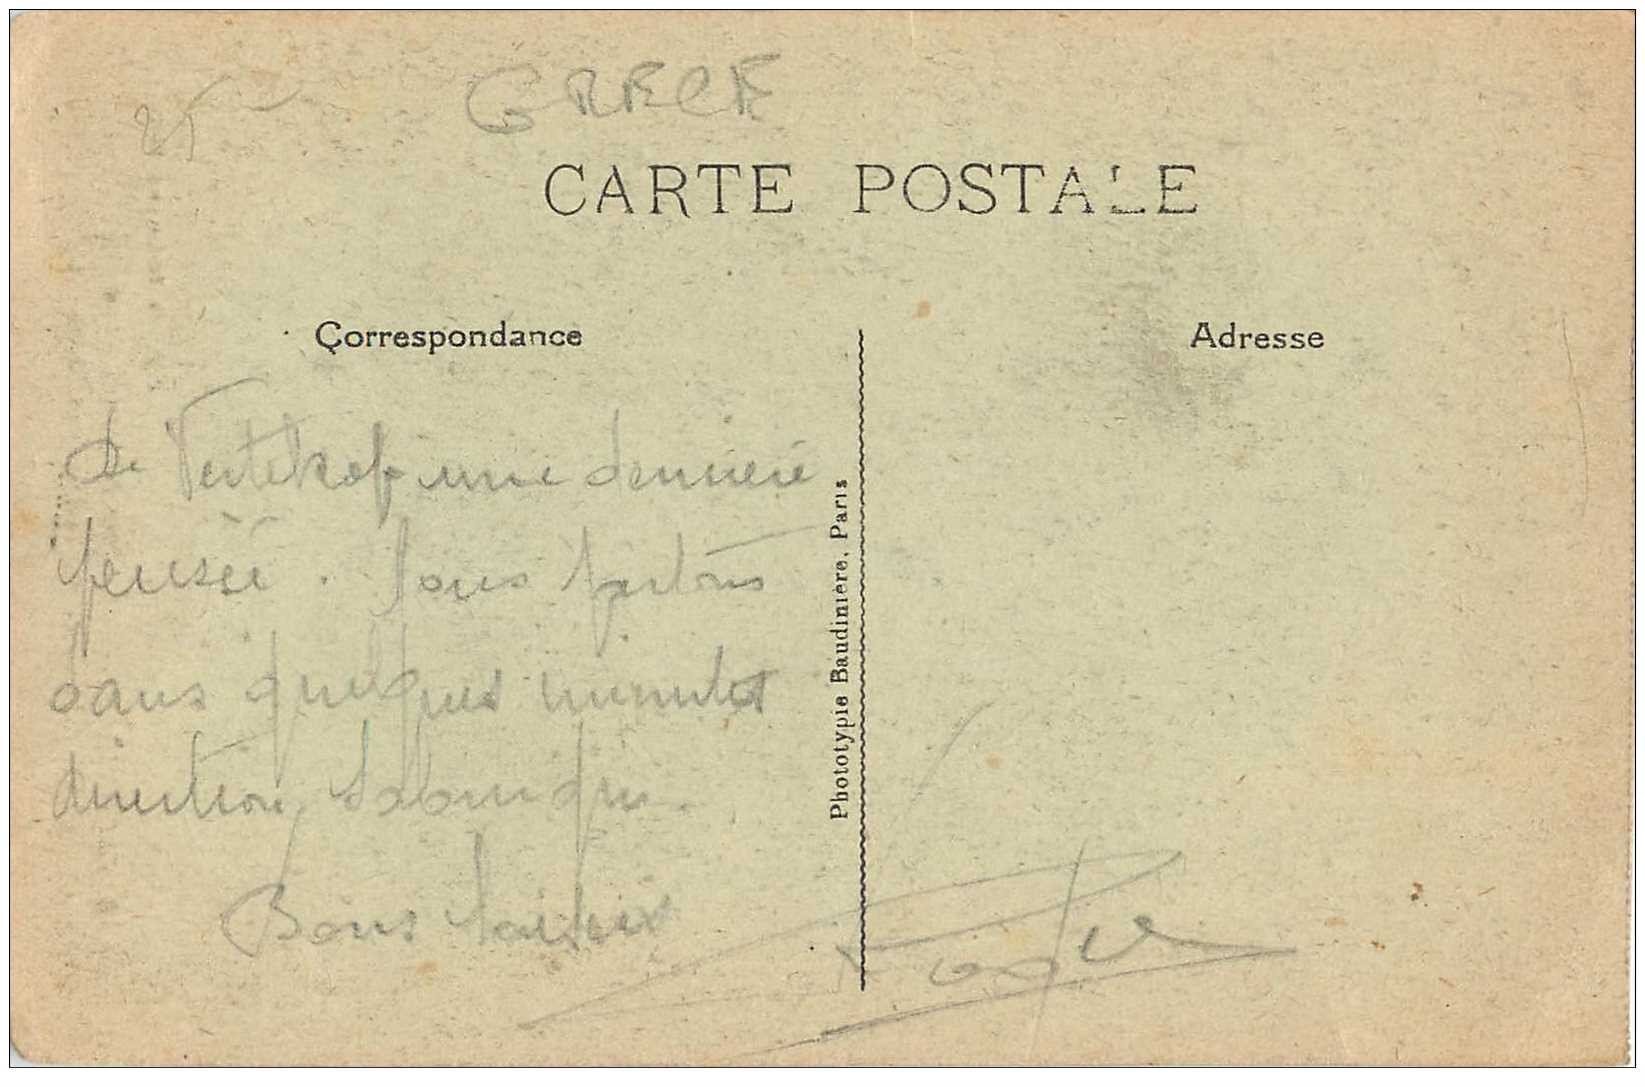 25
GRECE
CARTE POSTALE
Correspondance
Adresse
de Vertekop une derniere
pensée. Nous partons
dans quelques minutes
direction Salonique.
Bons baisers
Phototypie Baudinière, Paris